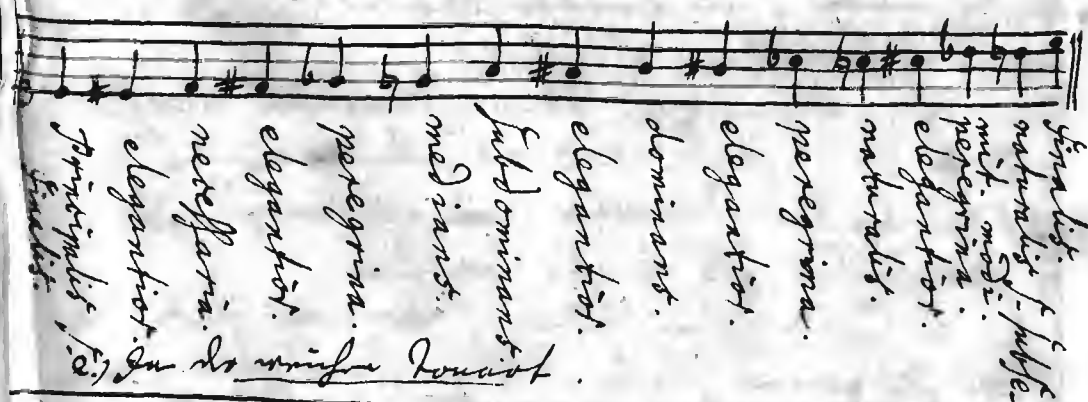 Principalis s.
finalis.
elegantior.
necessaria.
elegantior.
peregrina.
medians.
Subdominans.
elegantior.
dominans.
elegantior.
peregrina.
naturalis.
elegantior.
peregrina.
mut. modi:
naturalis s. subse-
Finalis.
2.) In der weichen Tonart.